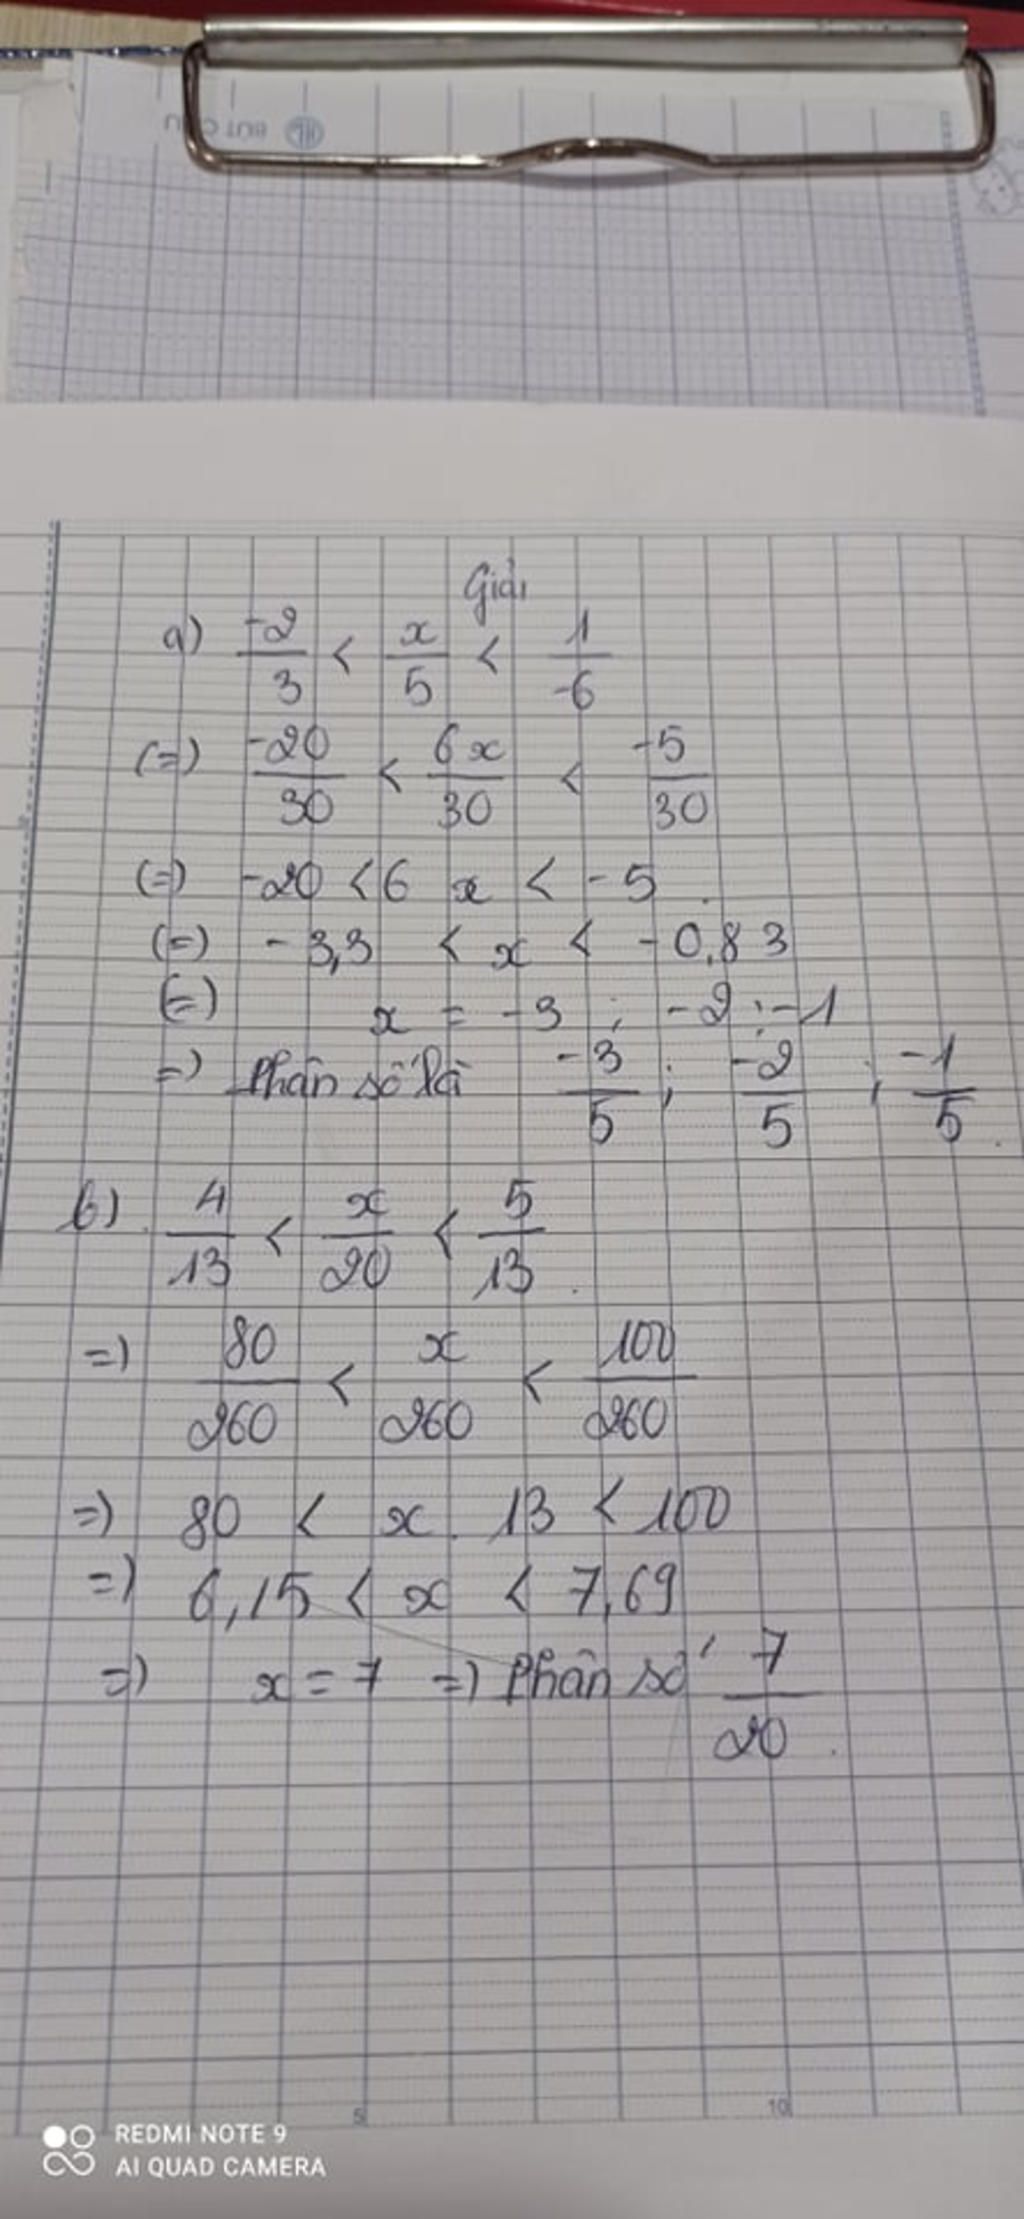 Giải
a) -2/3 < x/5 < 1/-6
(=) -20/30 < 6x/30 < -5/30
(=) -20 < 6 x < -5
(=) -3,3 < x < -0,83
(=) x = -3 ; -2 ; -1
=) Phân số là -3/5 ; -2/5 ; -1/5
b) 4/13 < x/20 < 5/13
=) 80/260 < x/260 < 100/260
=) 80 < x . 13 < 100
=) 6,15 < x < 7,69
=) x = 7 =) Phân số 7/20
5 10
REDMI NOTE 9
AI QUAD CAMERA